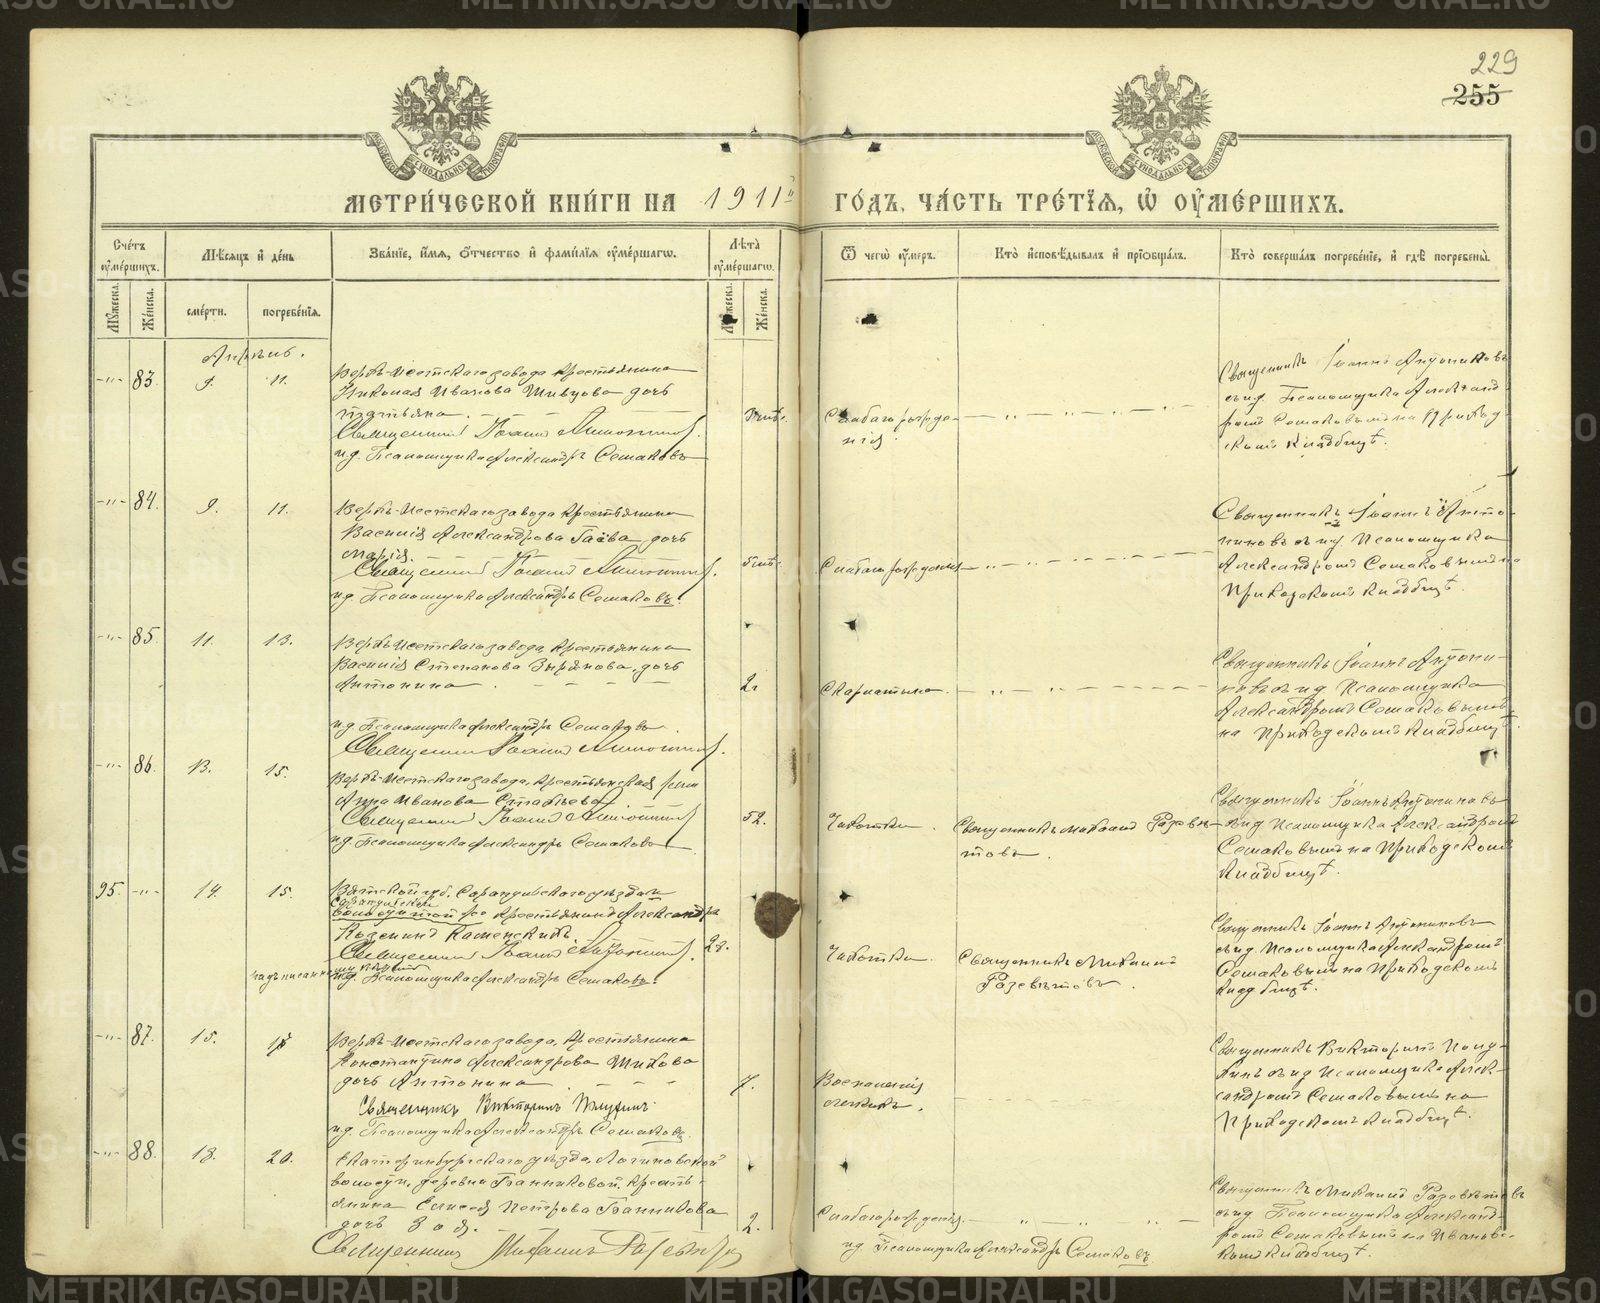 229
255
МОСКОВСКОЙ СѴНОДАЛЬНОЙ ТИПОГРАФІИ
МОСКОВСКОЙ СѴНОДАЛЬНОЙ ТИПОГРАФІИ
МЕТРИ́ЧЕСКОЙ КНИ́ГИ НА 1911й ГО́ДЪ, ЧА́СТЬ ТРЕ́ТІЯ, Ѡ҆ ОУ҆МЕ́РШИХЪ.
Сче́тъ оу҆ме́ршихъ.
Мꙋ́жеска.
Же́нска.
Мѣ́сяцъ и҆ де́нь
сме́рти.
погребе́нія.
Зва́ніе, и҆́мя, ѻ҆́тчество и҆ фами́лія оу҆ме́ршагѡ.
Лѣ́та оу҆ме́ршагѡ.
Мꙋ́жеска.
Же́нска.
Ѿ чегѡ̀ оу҆́меръ.
Кто̀ и҆сповѣ́дывалъ и҆ пріѡбща́лъ.
Кто̀ соверша́лъ погребе́ніе, и҆ гдѣ̀ погребены̀.
Апрѣль.
-"- 83. 9. 11.
Верхъ-Исетскаго завода крестьянина
Николая Иванова Шивцова дочь
Татьяна.
Священникъ Іоаннъ Антониновъ
и.д. Псаломщика Александръ Семаковъ
Слабаго рожде-
нія.
Священникъ Іоаннъ Антониновъ
съ и.д. Псаломщика Александ-
ромъ Семаковымъ на Приход-
скомъ кладбищѣ.
-"- 84. 9. 11.
Верхъ-Исетскаго завода крестьянина
Василія Александрова Гаёва дочь
Марія.
Священникъ Іоаннъ Антониновъ
и.д. Псаломщика Александръ Семаковъ.
Слабаго рожденія
Священникъ Іоаннъ Анто-
ниновъ съ и.д. Псаломщика
Александромъ Семаковымъ на
Приходскомъ кладбищѣ.
-"- 85. 11. 13.
Верхъ-Исетскаго завода, крестьянина
Василія Степанова Зырянова, дочь
Антонина.
2.
Скарлатина.
и.д. Псаломщика Александръ Семаковъ.
Священникъ Іоаннъ Антониновъ
Священникъ Іоаннъ Антони-
новъ съ и.д. Псаломщика
Александромъ Семаковымъ
на Приходскомъ кладбищѣ.
-"- 86. 13. 15.
Верхъ-Исетскаго завода, крестьянская
Анна Иванова
Священникъ Іоаннъ Антониновъ
и.д. Псаломщика Александръ Семаковъ
52.
Чахотки.
Священникъ Михаилъ Разсвѣ-
товъ.
Священникъ Іоаннъ Антониновъ
съ и.д. Псаломщика Александромъ
Семаковымъ на Приходскомъ
кладбищѣ.
95. -"- 14. 15.
Вятской губ. Сарапульскаго уѣзда
крестьянинъ Александръ
Каменскихъ.
Священникъ Іоаннъ Антониновъ.
Псаломщика Александръ Семаковъ.
Чахотки.
Священникъ Михаилъ
Разсвѣтовъ.
Священникъ Іоаннъ Антониновъ
съ и.д. Псаломщика Александромъ
Семаковымъ на Приходскомъ
кладбищѣ.
-"- 87. 15.
Верхъ-Исетскаго завода, крестьянина
Константина Александрова Шихова
дочь Антонина.
7.
Священникъ Викторинъ
и.д. Псаломщика Александръ Семаковъ.
Воспаленія
легкихъ.
Священникъ Викторинъ
съ и.д. Псаломщика Алек-
сандромъ Семаковымъ на
Приходскомъ кладбищѣ.
-"- 88. 18. 20.
Екатеринбургскаго уѣзда, Логиновской
волости, деревни Банниковой, кресть-
янина Елисея Петрова Банникова
дочь Зоя.
2.
Священникъ Михаилъ Разсвѣтовъ
Слабаго рожденія.
и.д. Псаломщика Александръ Семаковъ
Священникъ Михаилъ Разсвѣтовъ
съ и.д. Псаломщика Александ-
ромъ Семаковымъ на Ивановс-
комъ кладбищѣ.
METRIKI.GASO-URAL.RU